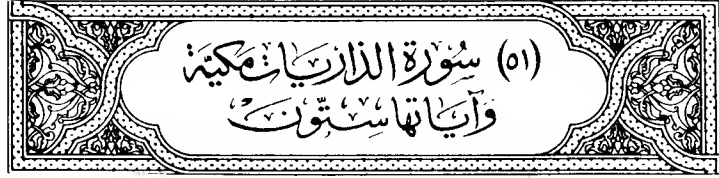 (٥١) سُورَة الذاريَات مكيَّة
وَآيَاتها سِتّونَ